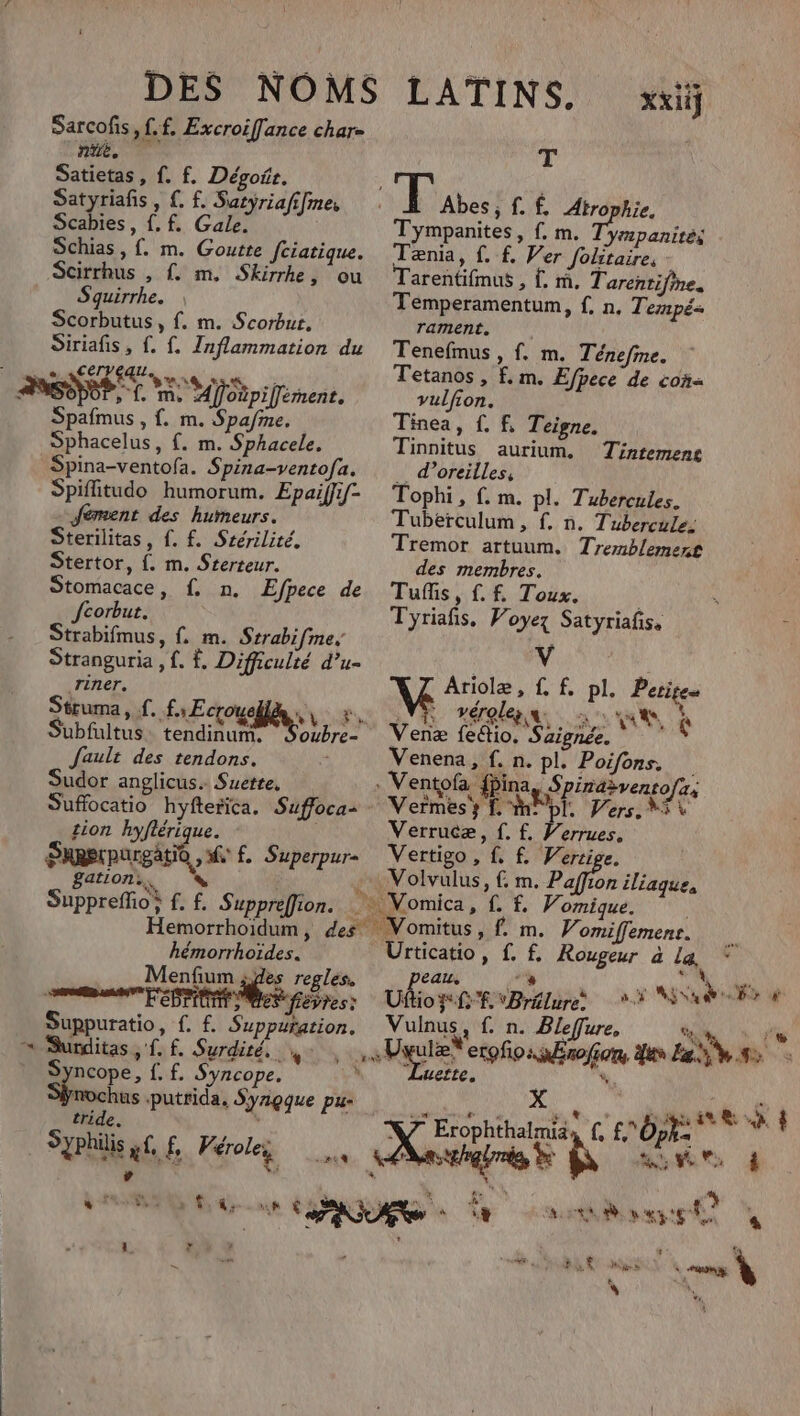 DES NOMS LATINS. xxiij
Sarcofis, f. f. Excroiſſance char-
nue.
Satietas, f. f. Dégoût.
Satyriaſis, f. f. Satyriaſiſme.
Scabies, f. f. Gale.
Schias, f. m. Goutte ſciatique.
Scirrhus, f. m. Skirrhe, ou
Squirrhe.
Scorbutus, f. m. Scorbut.
Siriaſis, f. f. Inflammation du
cerveau.
f. m. Aſſoupiſſement.
Spaſmus, f. m. Spaſme.
Sphacelus, f. m. Sphacele.
Spina-ventoſa. Spina-ventoſa.
Spiſſitudo humorum. Epaiſſiſ-
ſement des humeurs.
Sterilitas, f. f. Stérilité.
Stertor, f. m. Sterteur.
Stomacace, f. n. Eſpece de
ſcorbut.
Strabiſmus, f. m. Strabiſme.
Stranguria, f. f. Difficulté d'u-
riner.
Struma, f. f.
Subſultus tendinum. Soubre-
ſault des tendons.
Sudor anglicus. Suette.
Suffocatio hyſterica. Suffoca-
tion hyſtérique.
Superpurgatio, f. f. Superpur-
gation.
Suppreſſio, f. f. Suppreſſion.
Hemorrhoidum, des
hémorrhoïdes.
Menſium, des regles.
fievres.
Suppuratio, f. f. Suppuration.
Surditas, f. f. Surdité.
Syncope, f. f. Syncope.
Synochus putrida, Synoque pu-
tride.
Syphilis, f. f. Vérole.
T
Tabes, f. f. Atrophie.
Tympanites, f. m. Tympanite.
Tænia, f. f. Ver ſolitaire.
Tarentiſmus, f. m. Tarentiſme.
Temperamentum, f. n. Tempé-
rament.
Teneſmus, f. m. Téneſme.
Tetanos, f. m. Eſpece de con-
vulſion.
Tinea, f. f. Teigne.
Tinnitus aurium. Tintement
d'oreilles.
Tophi, f. m. pl. Tubercules.
Tuberculum, f. n. Tubercule.
Tremor artuum. Tremblement
des membres.
Tuſſis, f. f. Toux.
Tyriaſis. Voyez Satyriaſis.
V
Variolæ, f. f. pl. Petite-
vérole.
Venæ ſectio. Saignée.
Venena, f. n. pl. Poiſons.
Ventoſa ſpina, Spina-ventoſa.
Vermes, f. m. pl. Vers.
Verrucæ, f. f. Verrues.
Vertigo, f. f. Vertige.
Volvulus, f. m. Paſſion iliaque.
Vomica, f. f. Vomique.
Vomitus, f. m. Vomiſſement.
Urticatio, f. f. Rougeur à la
peau.
Uſtio, f. f. Brûlure.
Vulnus, f. n. Bleſſure.
Uvulæ eroſio.
Luette.
X
Xerophthalmia, f. f.